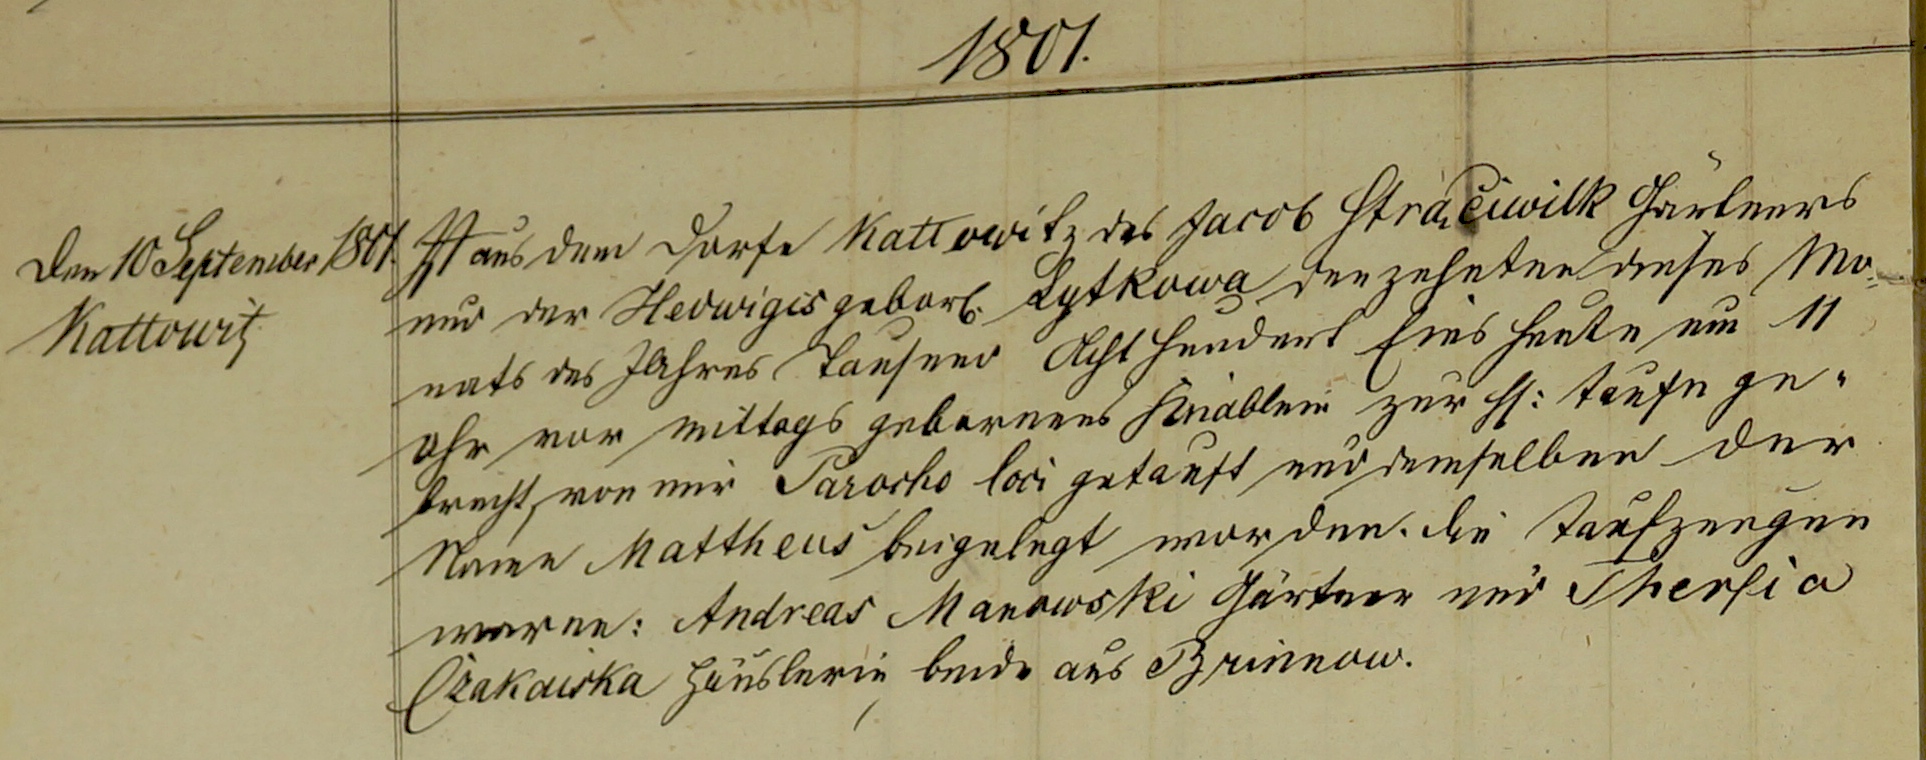 1801.
Den 10 September 1801.
Kattowitz
Ist aus dem Dorfe Kattowitz des Jacob Strąciwilk Gärtners
und der Hedwigis gebor. Lytkowa den zehnten dieses Mo-
nats des Jahres Tausend Acht Hundert Eins heute um 11
Uhr vor mittags gebornens Knäblein zur Hl: Taufe ge-
bracht, von mir Parocho loci getauft und demselben der
Name Mattheus beigelegt worden. Die Taufzeugen
waren: Andreas Manowski Gärtner und Thersia
Czakaiska Häuslerin beide aus Brinnow.